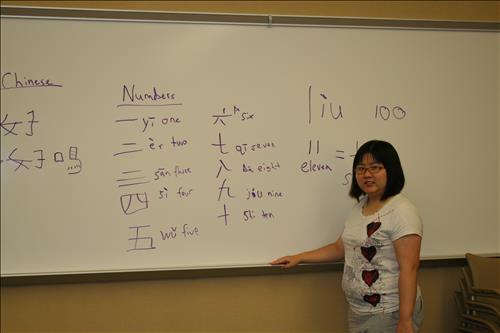 Chinese
女子
女子吗
Numbers
一 yī one
二 èr two
三 sān three
四 sì four
五 wǔ five
六 six
七 qī seven
八 bā eight
九 jǐu nine
十 shí ten
liù 100
11 =
eleven